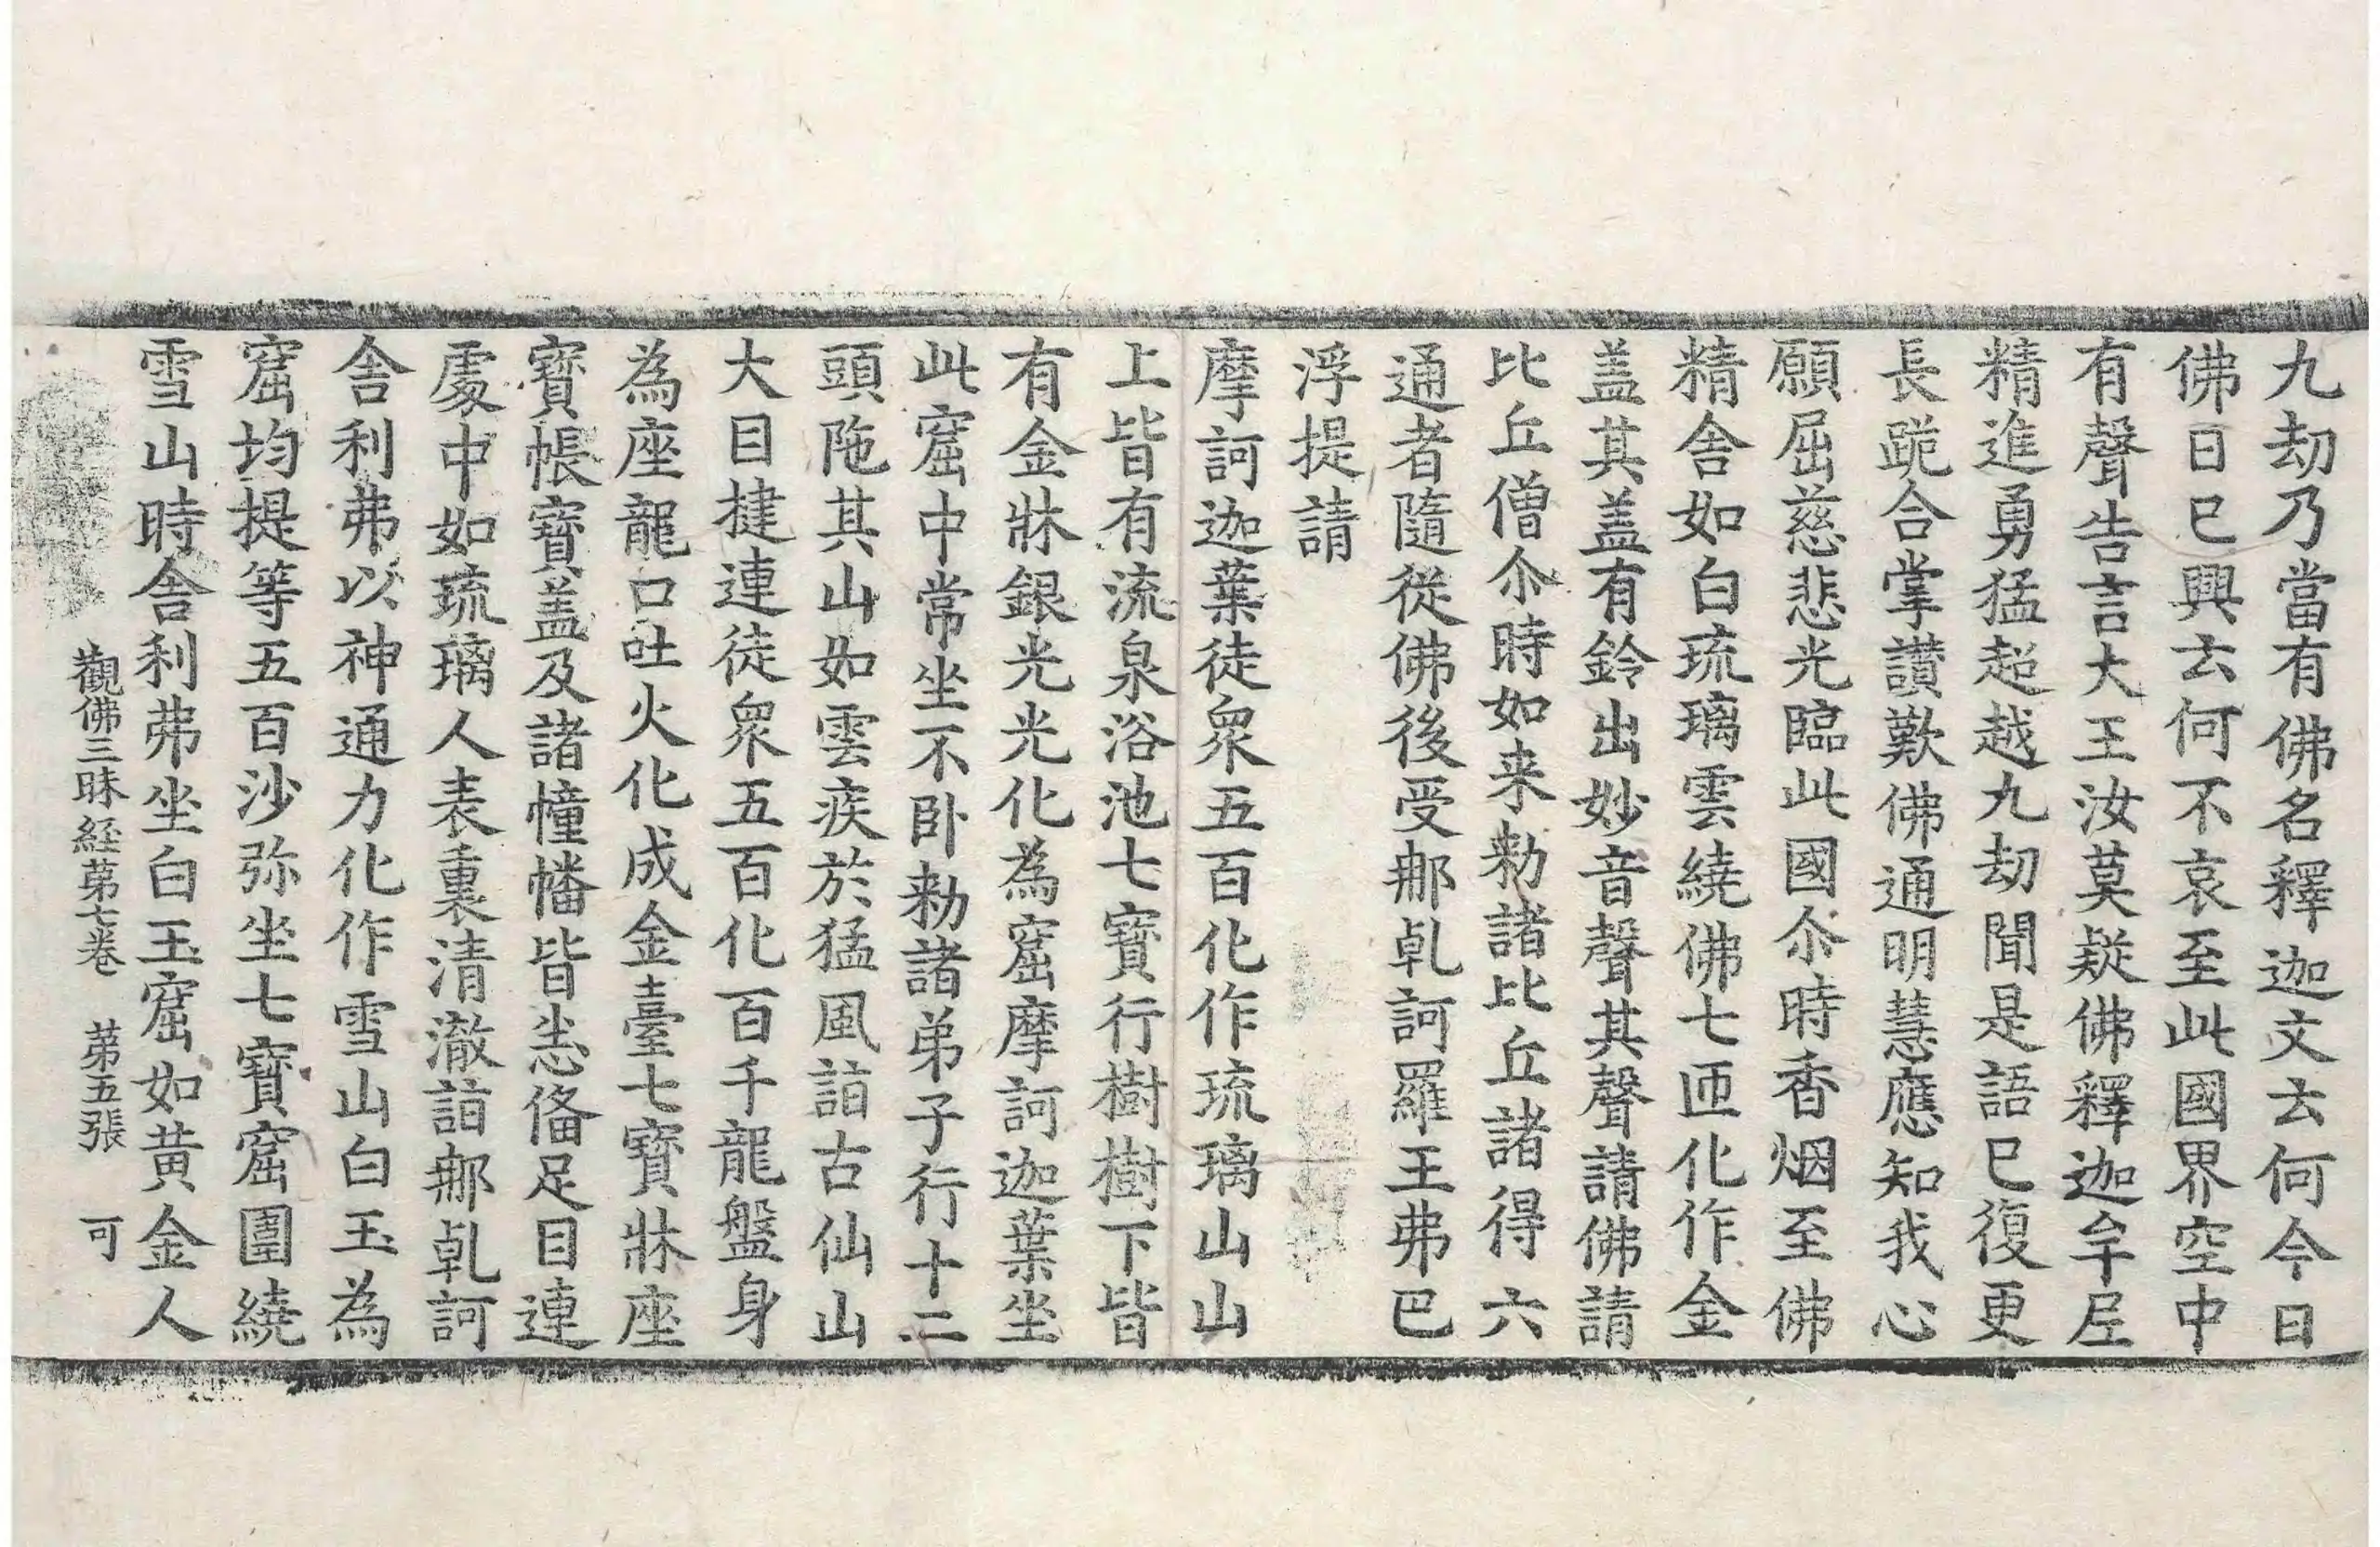 九劫乃當有佛名釋迦文云何今日
佛日已興云何不哀至此國界空中
有聲告言大王汝莫疑佛釋迦牟尼
精進勇猛超越九劫聞是語已復更
長跪合掌讃歎佛通明慧應知我心
願屈慈悲光臨此國尒時香烟至佛
精舍如白琉璃雲繞佛七匝化作金
盖其盖有鈴出妙音聲其聲請佛請
比丘僧尒時如来勑諸比丘諸得六
通者隨從佛後受那乹訶羅王弗巴
浮提請
摩訶迦葉徒衆五百化作琉璃山山
上皆有流泉浴池七寶行樹樹下皆
有金牀銀光光化為窟摩訶迦葉坐
此窟中常坐不卧勑諸弟子行十二
頭陁其山如雲疾於猛風詣古仙山
大目揵連徒衆五百化百千龍盤身
為座龍口吐火化成金臺七寶牀座
寶帳寶盖及諸幢幡皆悉俻足目連
處中如琉璃人表裏清澈詣那乹訶
舍利弗以神通力化作雪山白玉為
窟均提等五百沙弥坐七寶窟圍繞
雪山時舍利弗坐白玉窟如黄金人
觀佛三昧経苐七卷　苐五張　可